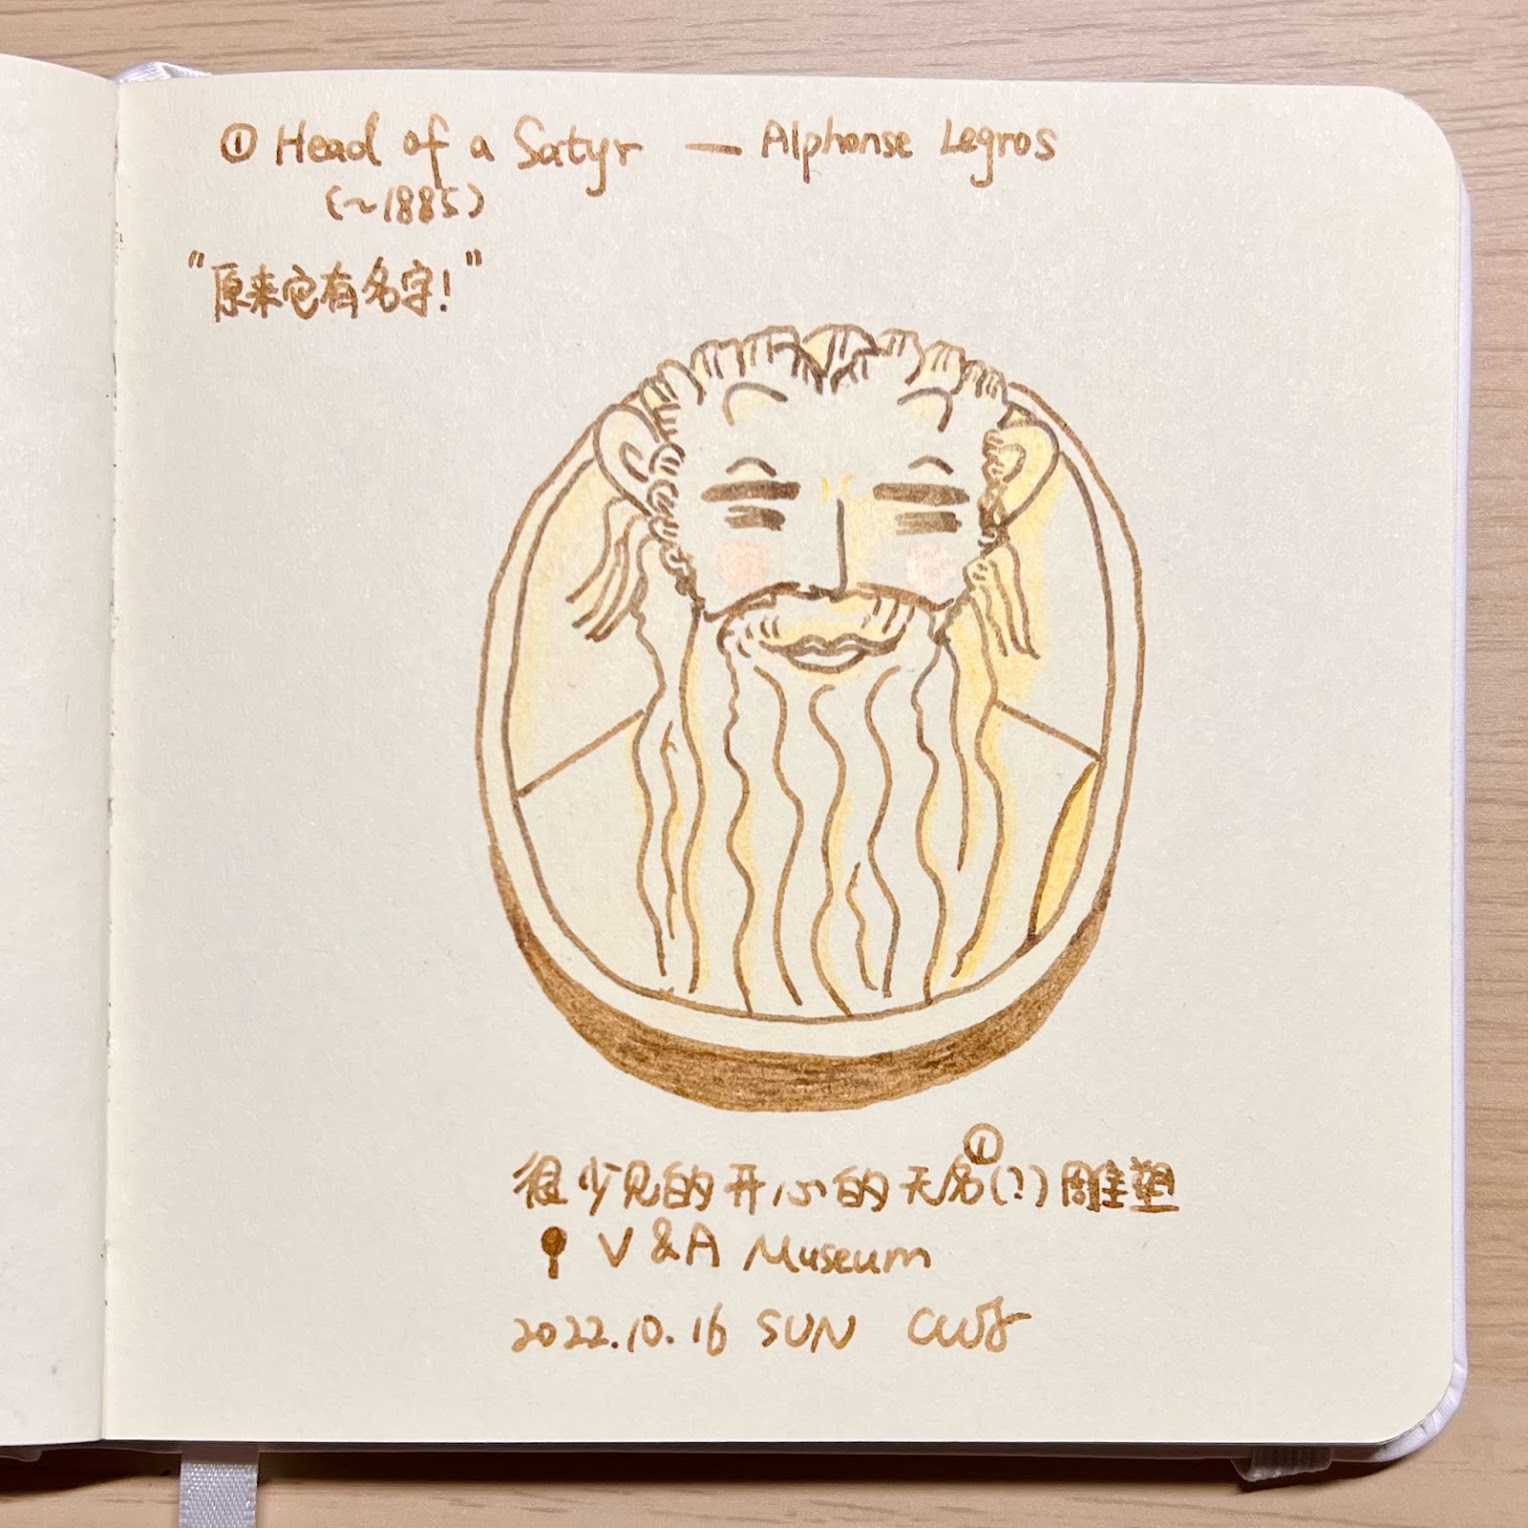 ① Head of a Satyr — Alphonse Legros
(~1885)
"原来它有名字!"
①
很少见的开心的无名(?)雕塑
V&A Museum
2022.10.16 SUN